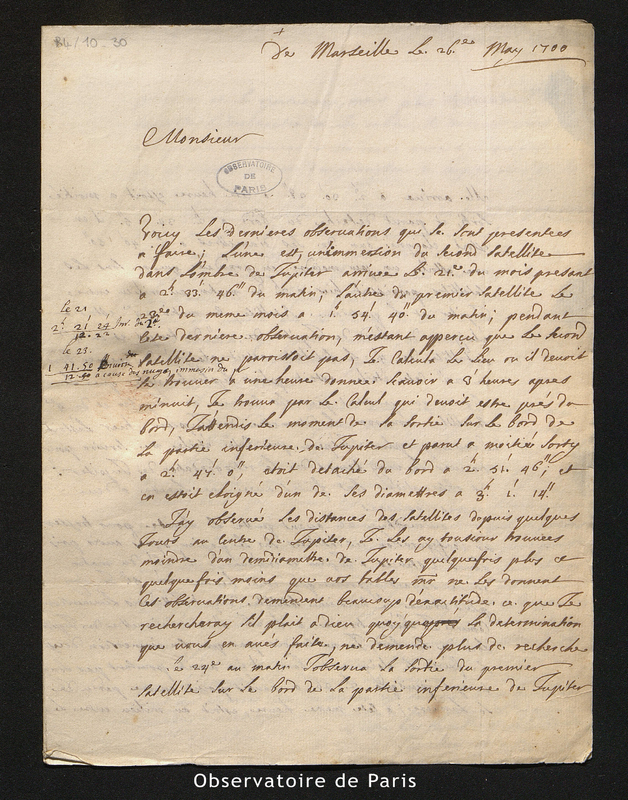 B4/10-30
De Marseille Le 26.ee May 1700
Monsieur
OBSERVATOIRE
DE
PARIS
Voicy Les dernieres observations qui se sont presentées
a faire; L'une est, un'immersion du second satellite
dans L'ombre de Jupiter arrivée Le 21.e du mois present
a 2.h 33.' 46.'' du matin; L'autre du premier satellite Le
23.ee du meme mois a 1.h 54.' 40.'' du matin; pendant
Cete derniere observation, m'estant apperçu que Le second
satellite ne parroissoit pas, Je Calcula Le Lieu ou il devoit
se trouver a une heure donnée scavoir a 3 heures apres
minuit, Je trouva par Le Calcul qui devoit estre prés du
bord, J'attendis Le moment de sa sortie sur Le bord de
La partie inferieure de Jupiter et parut a moitié sorty
a 2.h 47.' 0'', etoit detaché du bord a 2.h 51.' 46'', et
en estoit eloigné d'un de ses diamettres a 3.h 1.' 14''.
J'ay observé Les distances des satellites depuis quelques
Jours au Centre de Jupiter, Je Les ay tousiour trouvées
moindre d'un demidiamettre de Jupiter quelquefois plus et
quelquefois moins que vos tables mr ne Les donnent
Ces observations demendent beaucoup d'exactitude. ce que Je
rechercheray s'il plait a dieu quoyque La determination
que vous en avés faite, ne demende plus de recherche
Le 24.e au matin J'observa La sortie du premier
satellite sur Le bord de La partie inferieure de Jupiter
le 21
2.h 21 24
12.22
le 23.
1 41.50
12.50 a cause des nuages immersion du
Observatoire de Paris